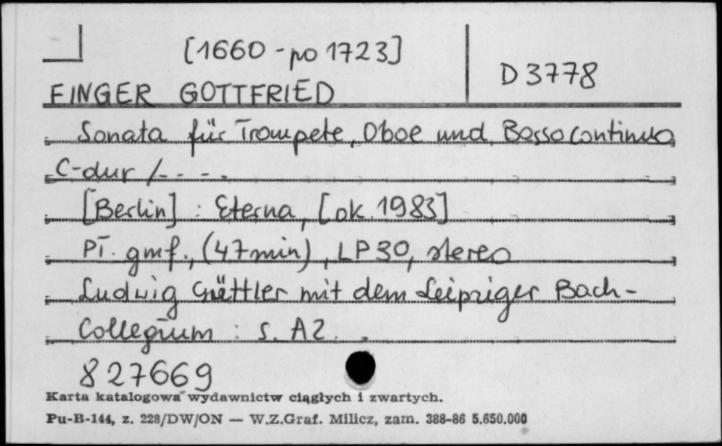 [1660 - po 1723]
D 3778
FINGER GOTTFRIED
Sonata für Trompete, Oboe und Basso continuo
C-dur / - - - -
[Berlin] : Eterna, [ok. 1983]
Pł. gmf., (47 min), LP 30, stereo
Ludwig Güttler mit dem Leipziger Bach-
Collegium : s. A2.
827669
Karta katalogowa wydawnictw ciągłych i zwartych.
Pu-B-144, z. 228/DW/ON — W.Z.Graf. Milicz, zam. 388-86 5.650.000